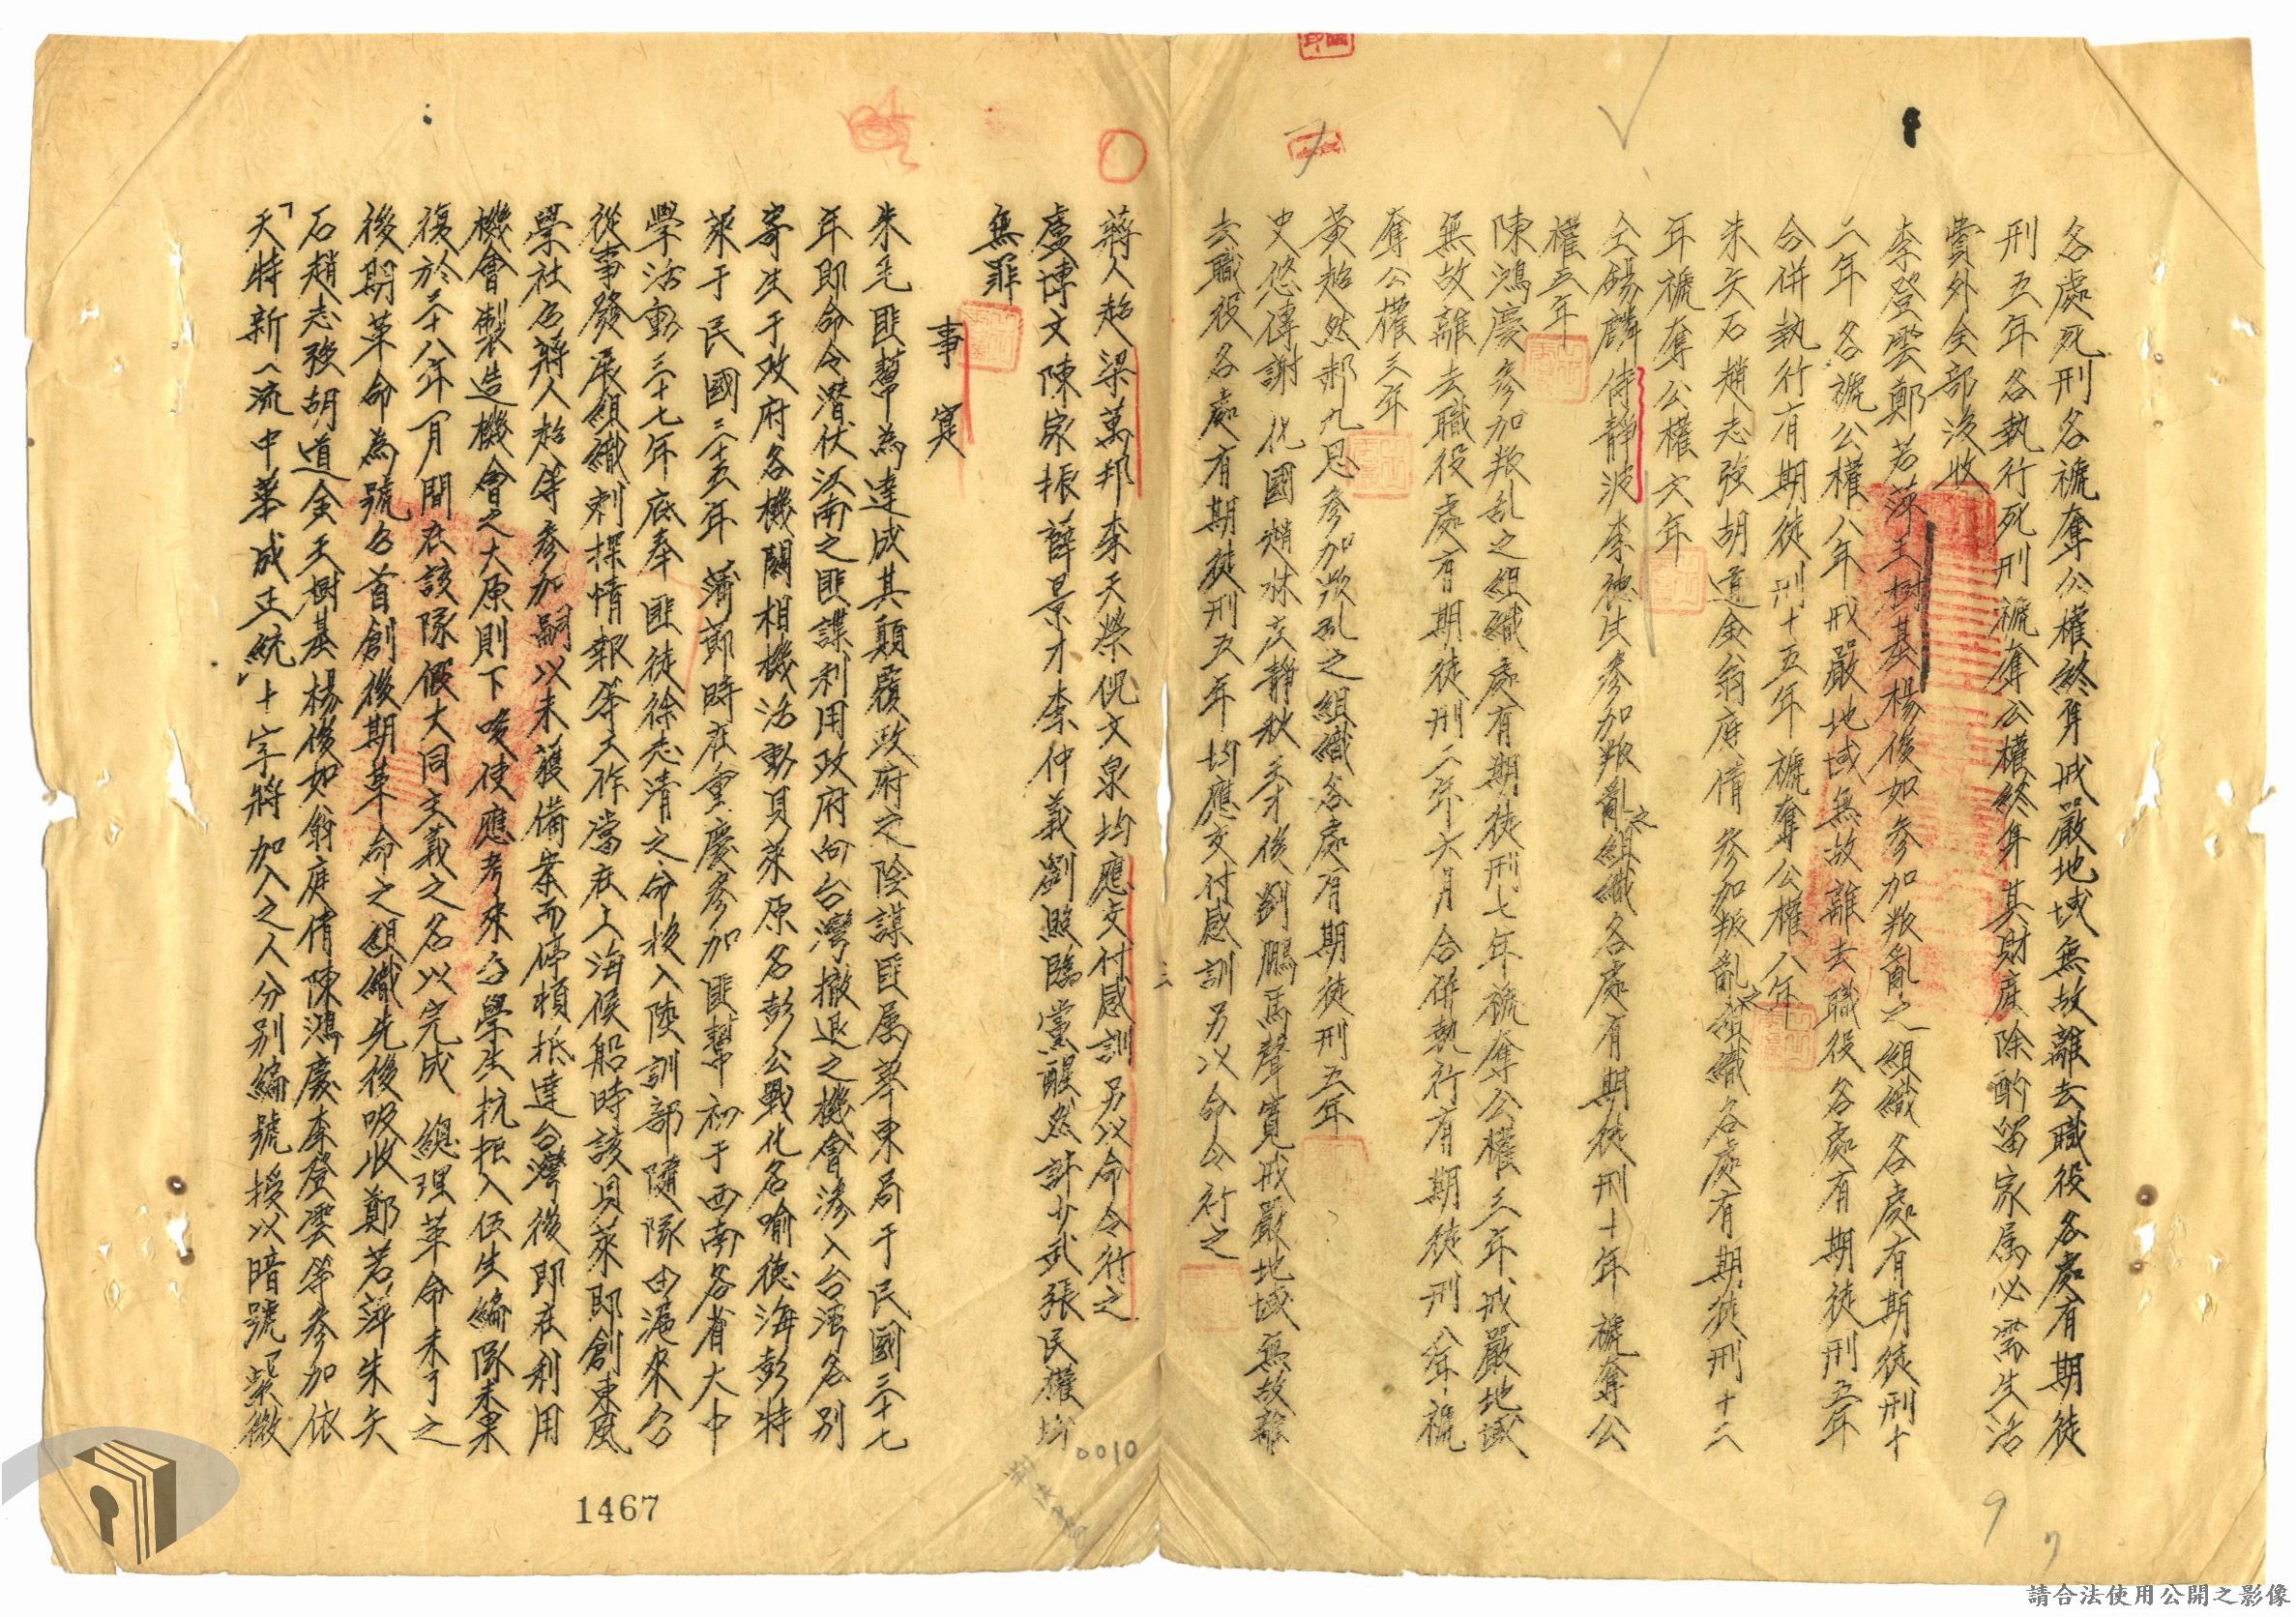 各處死刑各褫奪公權終身戒嚴地域無故離去職役各處有期徒
刑五年各執行死刑褫奪公權終身其財產除酌留家屬必需生活
費外全部沒收
李登雲鄭若萍王樹基楊俊如參加叛亂之組織各處有期徒刑十
二年各褫公權八年戒嚴地域無故離去職役各處有期徒刑五年
合併執行有期徒刑十五年褫奪公權八年
朱矢石趙志強胡道金翁庭倩參加叛亂之組織各處有期徒刑十二
年褫奪公權六年
仝錫麟侍靜波李德生參加叛亂之組織各處有期徒刑十年褫奪公
權五年
陳鴻慶參加叛乱之組織處有期徒刑七年褫奪公權三年戒嚴地域
無故離去職役處有期徒刑二年六月合併執行有期徒刑八年褫
奪公權三年
黃超然郝九思參加叛乱之組織各處有期徒刑五年
史悠傳謝化國趙林彥靜秋王才俊劉鵬馬聲寬戒嚴地域無故離
去職役各處有期徒刑五年均應交付感訓另以命令行之
三
蔣人超梁萬邦李天榮倪文泉均應交付感訓另以命令行之
盧博文陳家振薛景才李仲義劉照臨黨醒然許少武張民權均
無罪
事實
朱毛匪幫為達成其顛覆政府之陰謀匪属華東局于民國三十七
年即命令潛伏江南之匪諜利用政府向台灣撤退之機會滲入台湾各別
寄生于政府各機關相機活動貝萊原名彭公戰化名喻德海彭特
萊于民國三十五年蒲節時在重慶參加匪幫初于西南各省大中
學活動三十七年底奉匪徒徐志清之命投入陸訓部隨隊由滬來台
從事發展組織刺探情報等工作當在上海候船時該貝萊即創東風
學社名蔣人超等參加嗣以未獲備案而停頓抵達台灣後即在利用
機會製造機會之大原則下唆使應考來台學生抗拒入伍生編隊未果
復於三十八年八月間在該隊假大同主義之名以完成　總理革命未了之
後期革命為號召首創後期革命之組織先後吸收鄭若萍朱矢
石趙志強胡道金王樹基楊俊如翁庭倩陳鴻慶李登雲等參加依
「天特新一流中華成正統」十字將加入之人分別編號授以暗號「紫微
0010
1467
9
請合法使用公開之影像